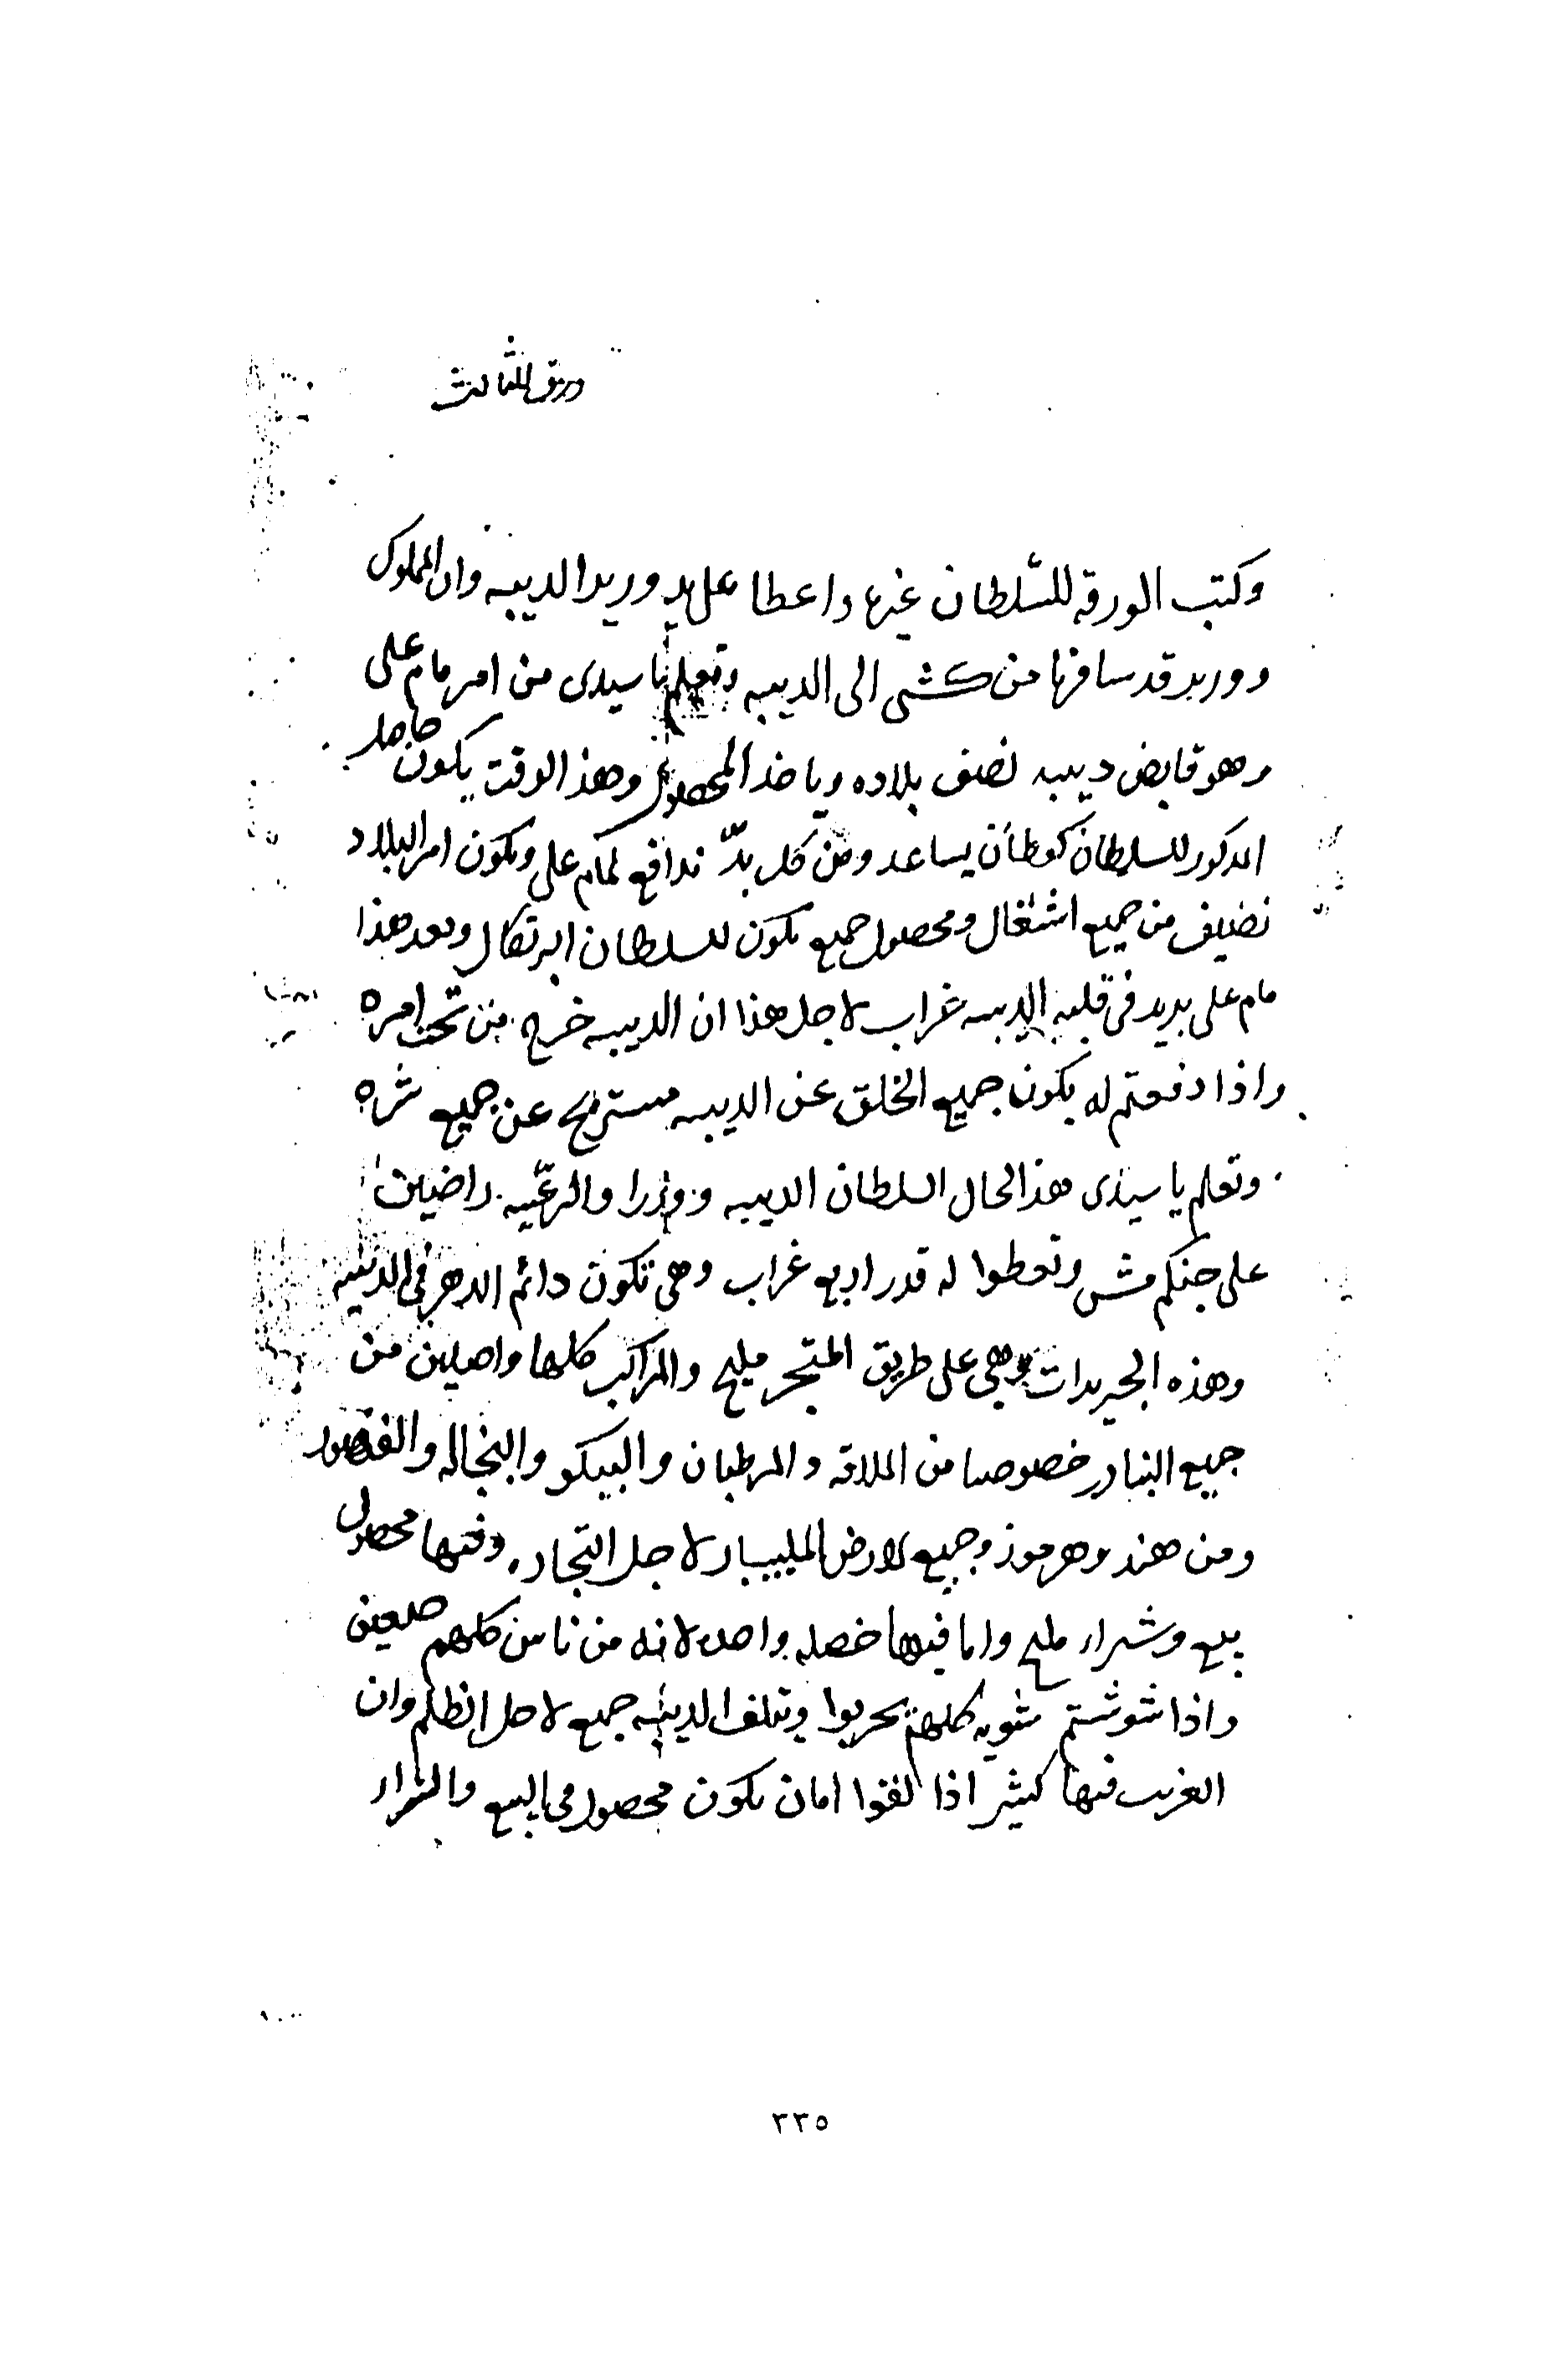 ورق الثالث
وكتب الورقه للسّلطان غيرها واعطا على يد وريد الديبه وان المملوك
و وريد قد سافرنا من كشى الى الديبه وتعلم يا سيدى من امر مام على
وهو قابض ديبه نصف بلاده وياخذ المحصول وهذ الوقت يكون حاصل
المذكور للسلطان كبطان يساعد ومن كل بدّ ندافع لمام على ويكون امر البلاد
نضيف من جميع اشغال ومحصول جميع يكون للسلطان البرتكال وبعد هذا
مام على يريد فى قلبه الديبه خراب لاجل هذا ان الديبه خرج من تحت امره
واذا دفعتم له يكون جميع الخلق عن الديبه مستريح عن جميع شره
وتعلم يا سيدى هذ الحال السلطان الديبه ووزرا والرعيّه راضين
على جنكم مش وتعطوا له قدر اربع غراب وهى تكون دائم الدهر فى الديبه
وهذه الجزيرات وهى على طريق المتجر مليح والمراكب كلها واصلين من
جميع البنادر خصوصا من الملاقه والمرطبان والبيكو والبنجاله
ومن هند وهرموز وجميع الارض المليبار لاجل التجار. وفيها محصول
بيع وشراء مليح واما فيها خصله واحده لانه من ناس كلهم ضعيفين
واذا شوشتم شويه كلهم يهربوا وتتلف الديبه جميع لاجل الظلم وان
الغريب فيها كثير اذا لقوا امان يكون محصول فى البيع والشراء
٢٣٥